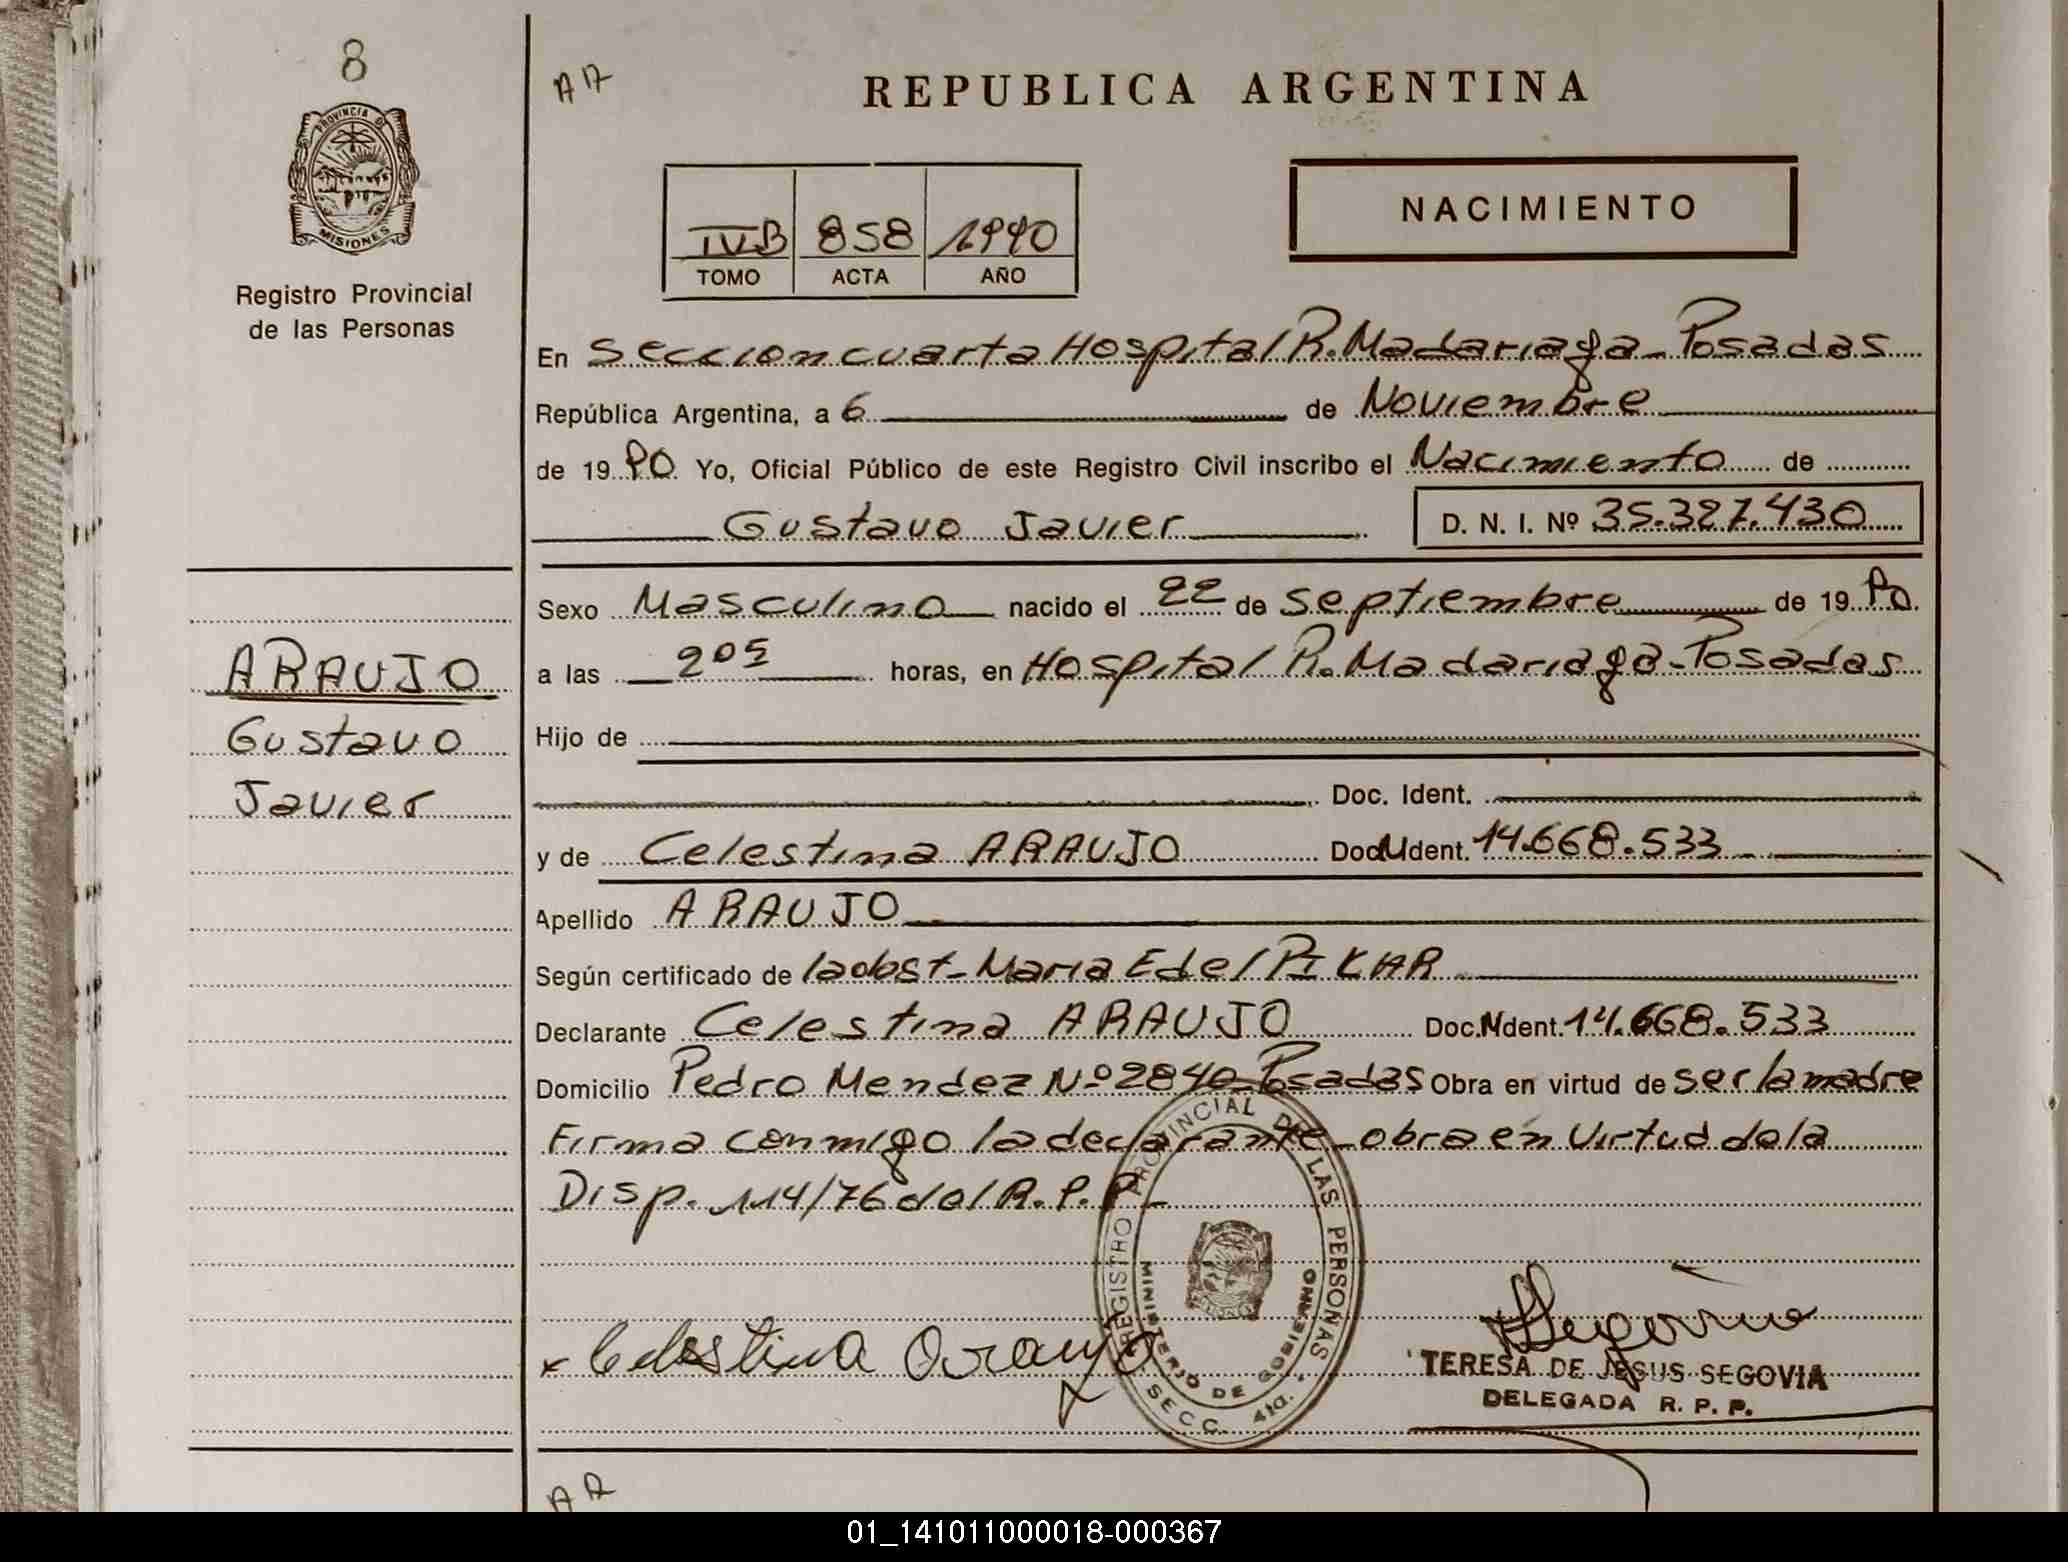 8
REPUBLICA ARGENTINA
PROVINCIA DE
MISIONES
Registro Provincial
de las Personas
NACIMIENTO
IVB 858 1990
TOMO ACTA AÑO
En Seccion cuarta Hospital R. Madariaga - Posadas
República Argentina, a 6 de Noviembre
de 19 90 Yo, Oficial Público de este Registro Civil inscribo el Nacimiento de
Gustavo Javier D. N. I. Nº 35.327.430
Sexo Masculino nacido el 22 de septiembre de 19 90.
a las 205 horas, en Hospital R. Madariaga - Posadas
Hijo de
Doc. Ident.
y de Celestina ARAUJO Doc. Ident. 14.668.533
Apellido ARAUJO
Según certificado de la obst - Maria Edel PIKHR
Declarante Celestina ARAUJO Doc. Ident. 14.668.533
Domicilio Pedro Mendez Nº 2840 - Posadas Obra en virtud de ser la madre
Firma conmigo la declarante - obra en Virtud de la
Disp. 114/76 del R.P.P. -
ARAUJO
Gustavo
Javier
x Celestina Araujo
REGISTRO PROVINCIAL DE LAS PERSONAS
MINISTERIO DE GOBIERNO
SECC. 4ta.
Segovia
TERESA DE JESUS SEGOVIA
DELEGADA R. P. P.
01_141011000018-000367